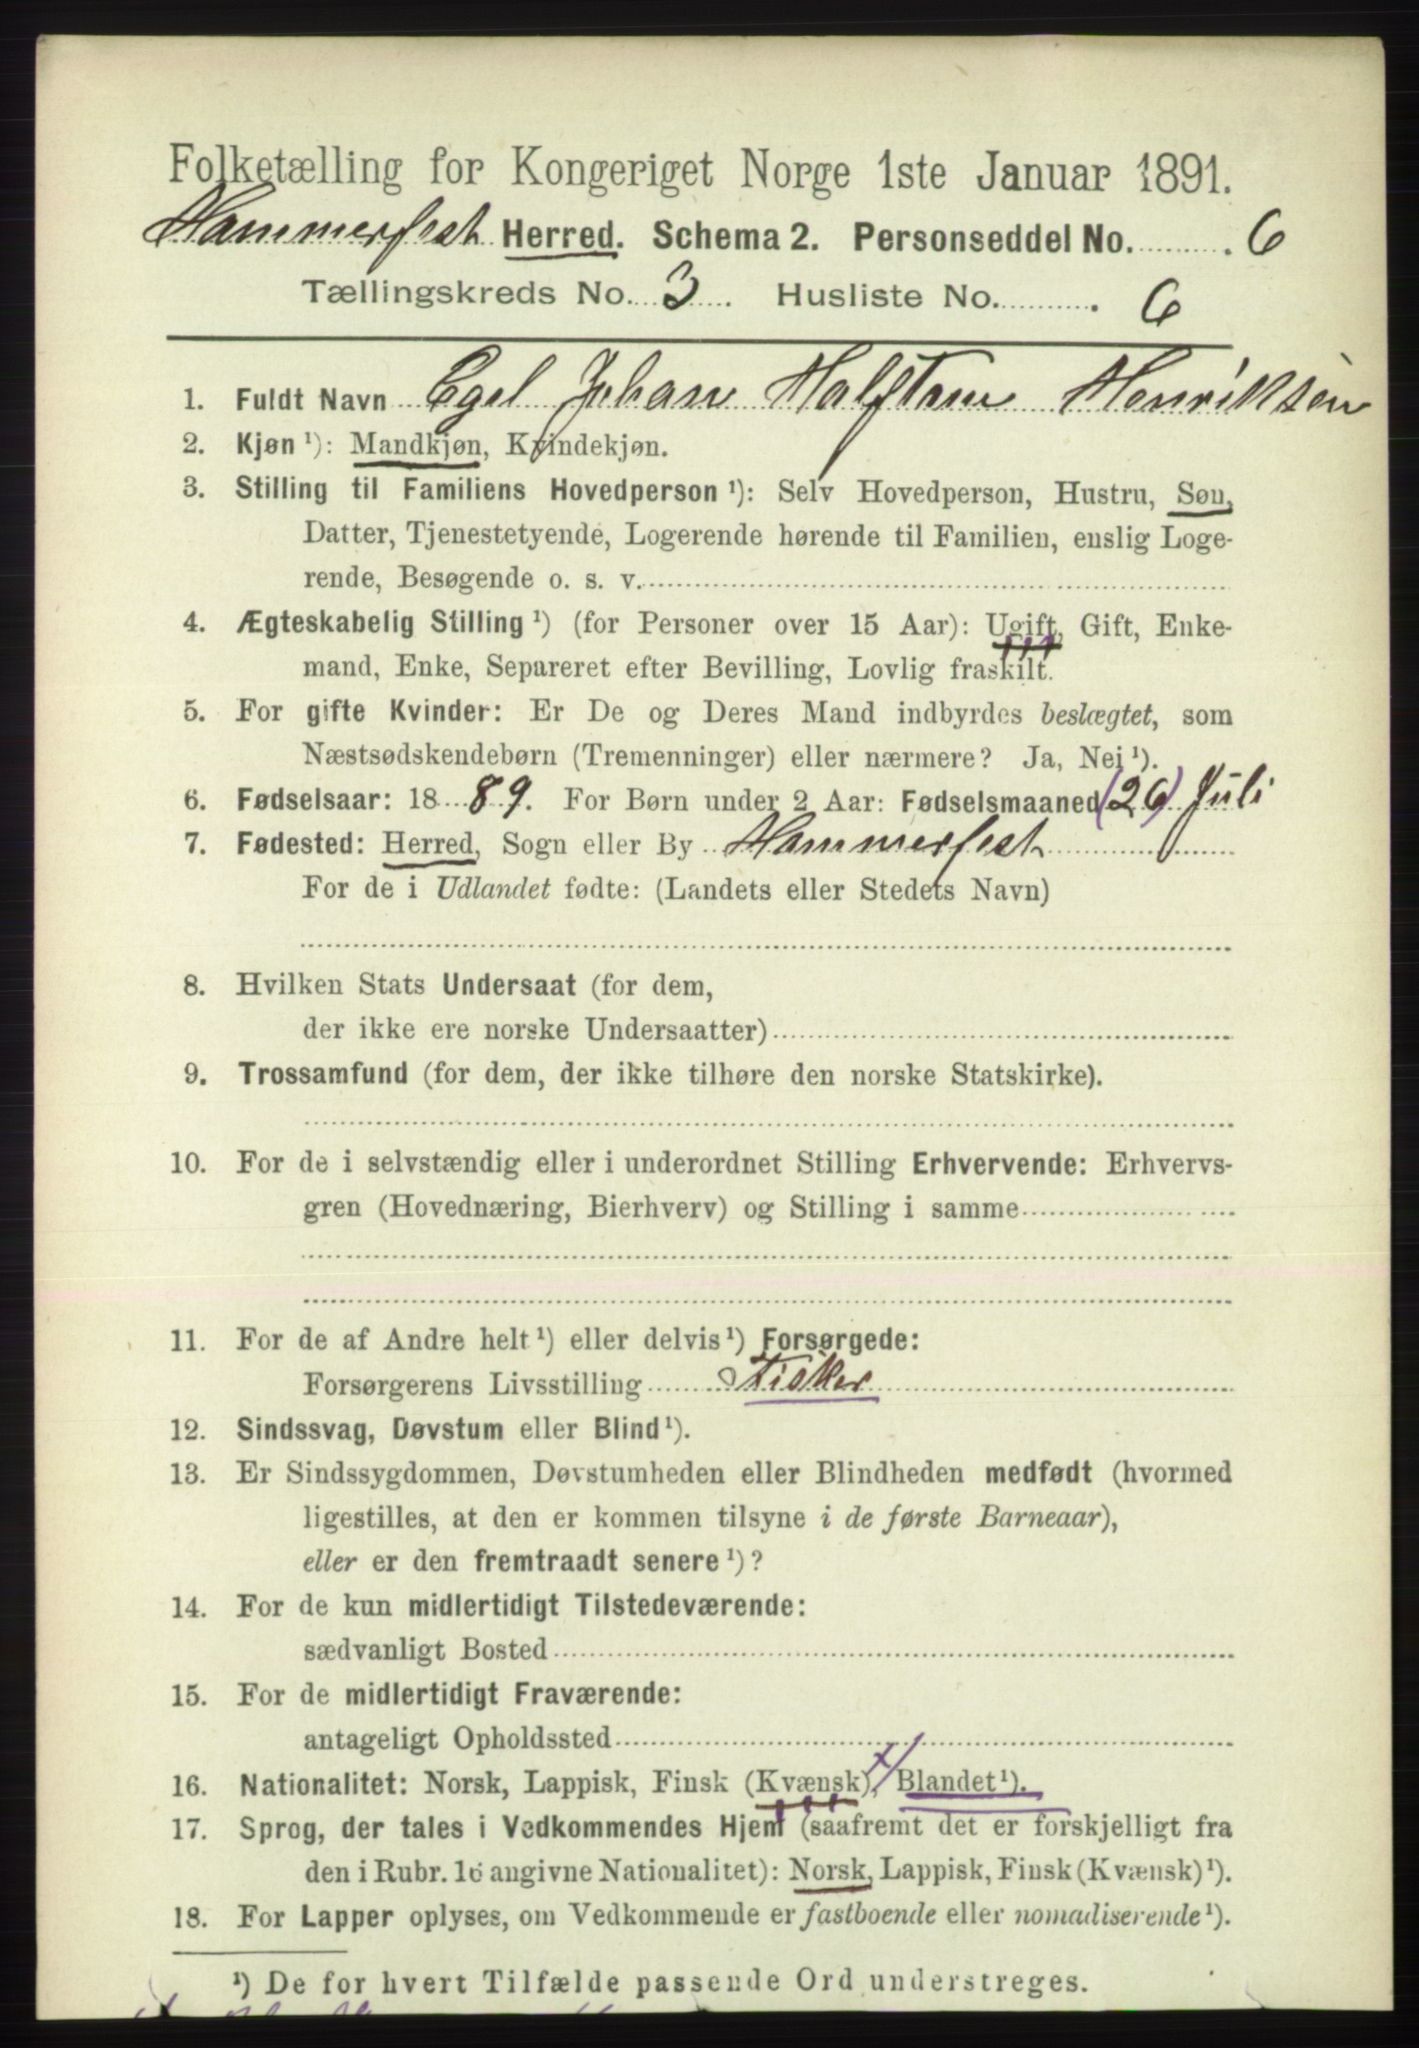 Folketælling for Kongeriget Norge 1ste Januar 1891.
Hammerfest Herred. Schema 2. Personseddel No. 6
Tællingskreds No. 3. Husliste No. 6
1. Fuldt Navn Egel Johan Halfdan Henriksen
2. Kjøn ¹): Mandkjøn, Kvindekjøn.
3. Stilling til Familiens Hovedperson ¹): Selv Hovedperson, Hustru, Søn,
Datter, Tjenestetyende, Logerende hørende til Familien, enslig Loge-
rende, Besøgende o. s. v.
4. Ægteskabelig Stilling ¹) (for Personer over 15 Aar): Ugift, Gift, Enke-
mand, Enke, Separeret efter Bevilling, Lovlig fraskilt.
5. For gifte Kvinder: Er De og Deres Mand indbyrdes beslægtet, som
Næstsødskendebørn (Tremenninger) eller nærmere? Ja, Nei ¹).
6. Fødselsaar: 1889. For Børn under 2 Aar: Fødselsmaaned (26) Juli
7. Fødested: Herred, Sogn eller By Hammerfest
For de i Udlandet fødte: (Landets eller Stedets Navn)
8. Hvilken Stats Undersaat (for dem,
der ikke ere norske Undersaatter)
9. Trossamfund (for dem, der ikke tilhøre den norske Statskirke).
10. For de i selvstændig eller i underordnet Stilling Erhvervende: Erhvervs-
gren (Hovednæring, Bierhverv) og Stilling i samme
11. For de af Andre helt ¹) eller delvis ¹) Forsørgede:
Forsørgerens Livsstilling Fisker
12. Sindssvag, Døvstum eller Blind ¹).
13. Er Sindssygdommen, Døvstumheden eller Blindheden medfødt (hvormed
ligestilles, at den er kommen tilsyne i de første Barneaar),
eller er den fremtraadt senere ¹)?
14. For de kun midlertidigt Tilstedeværende:
sædvanligt Bosted
15. For de midlertidigt Fraværende:
antageligt Opholdssted
16. Nationalitet: Norsk, Lappisk, Finsk (Kvænsk), Blandet ¹).
17. Sprog, der tales i Vedkommendes Hjem (saafremt det er forskjelligt fra
den i Rubr. 16 angivne Nationalitet): Norsk, Lappisk, Finsk (Kvænsk) ¹).
18. For Lapper oplyses, om Vedkommende er fastboende eller nomadiserende ¹).
¹) De for hvert Tilfælde passende Ord understreges.